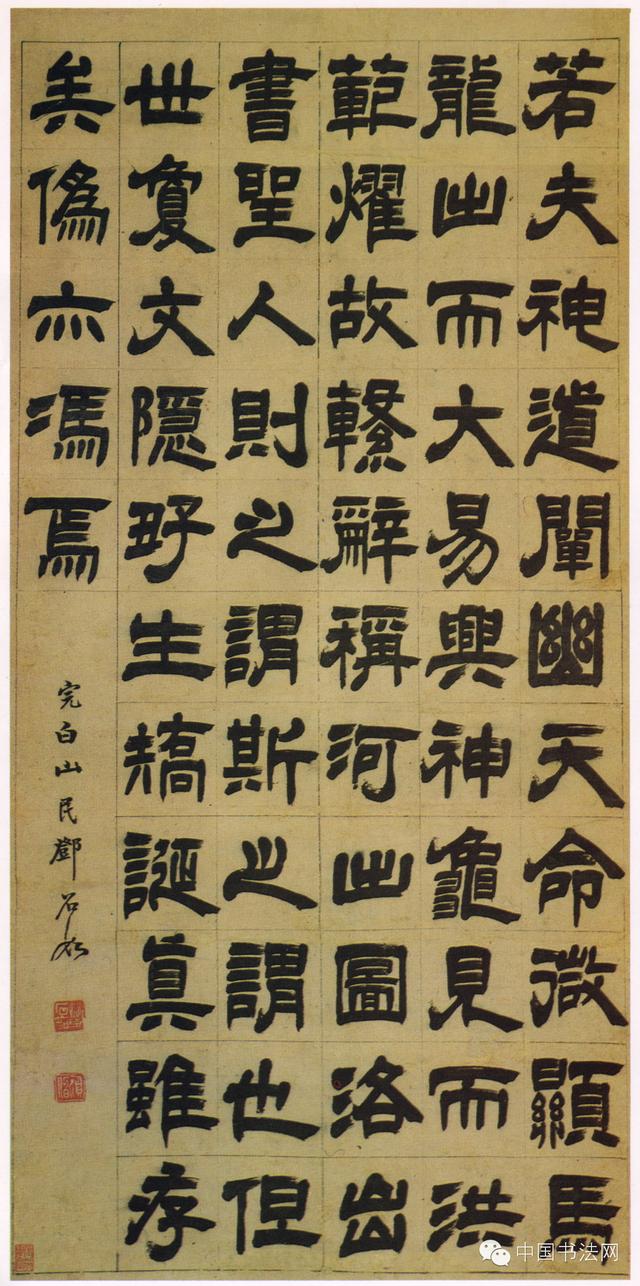 若夫神道闡幽天命微顯馬
龍出而大易興神龜見而洪
範燿故繫辭稱河出圖洛出
書聖人則之謂斯之謂也但
世敻文隱好生矯誕真雖存
矣偽亦馮焉
完白山民鄧石如
中国书法网